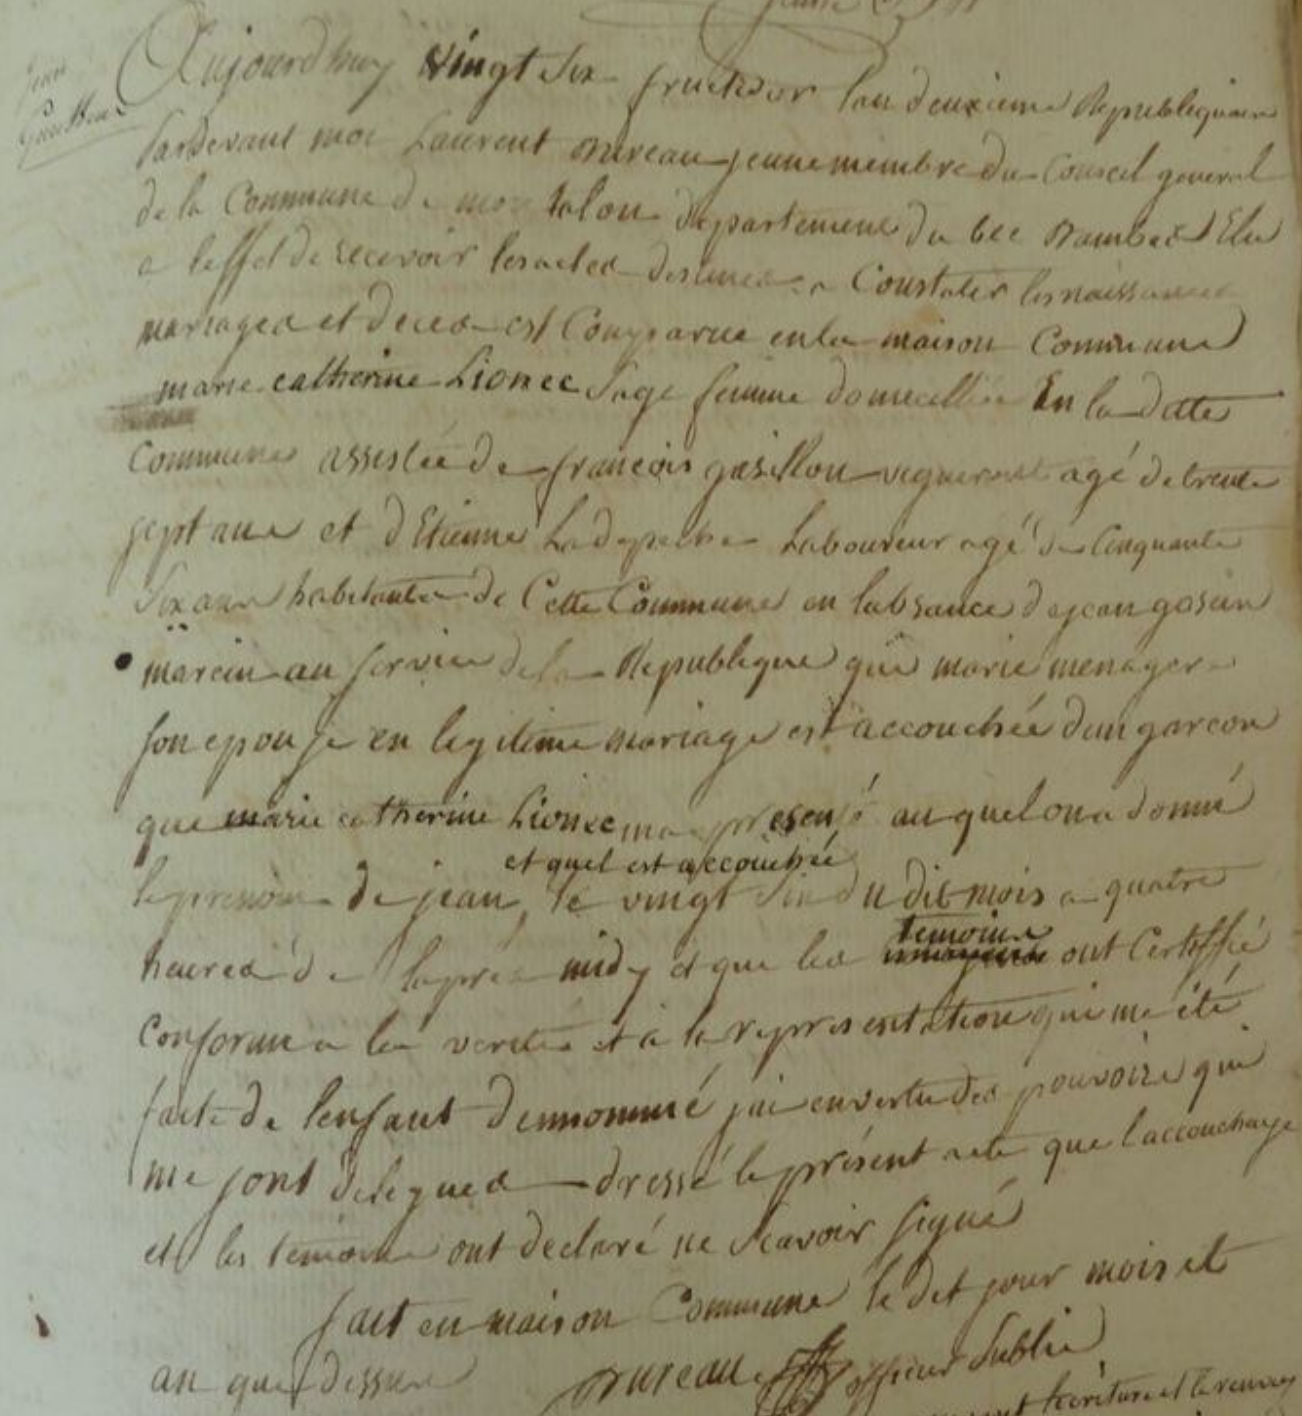 jean
Aujourdhuy vingt six fructidor lan deuxieme Republiquaine
Pardevant moi Laurent mureau jeune membre du Conseil general
de la Commune de mon talon departement du bec dambes Elu
a leffet de recevoir les actes destinés a Constater les naissances
mariages et deces est Comparue en la maison Commune
marie catherine Lionec Sage femme domicilliée En la ditte
Commune assistée de françois gasillon vigneron agé de trente
sept ans et dEtienne Ladepeche Laboureur agé de Cinquante
Six ans habitants de Cette Commune en labsance de jean
marein au service de la Republique que marie menager
son epouse en legitime mariage est accouchée dun garcon
que marie catherine Lionec ma presenté au quel on a donné
et quel est accouchée
le prenom de jean, le vingt six du dit mois a quatre
temoins
heures de lapres midy et que les ont Certiffié
Conforme a la verité et a la representation qui me été
faite de lenfant dennommé jai en vertu des pouvoirs qui
me sont delegués dressé le présent acte que laccouchaye
et les temoins ont declaré ne Scavoir signé
fait en maison Commune le dit jour mois et
an que dessus mureau officier Public
lecriture et le renvoy